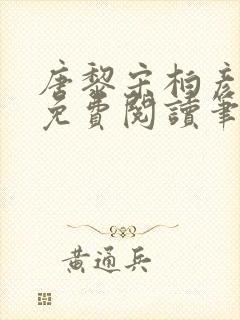 唐黎宋柏彥
免費閱讀筆
黃通兵